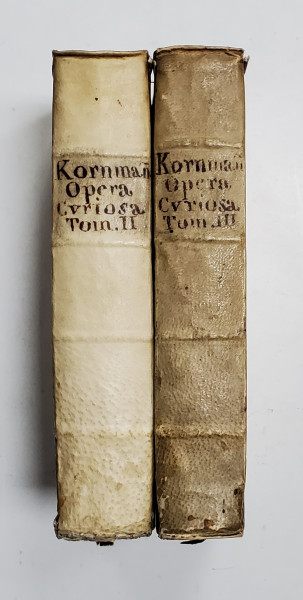 Kornmañ
Opera
Cvriosa
Tom. II
Kornmañ
Opera
Cvriosa
Tom. III